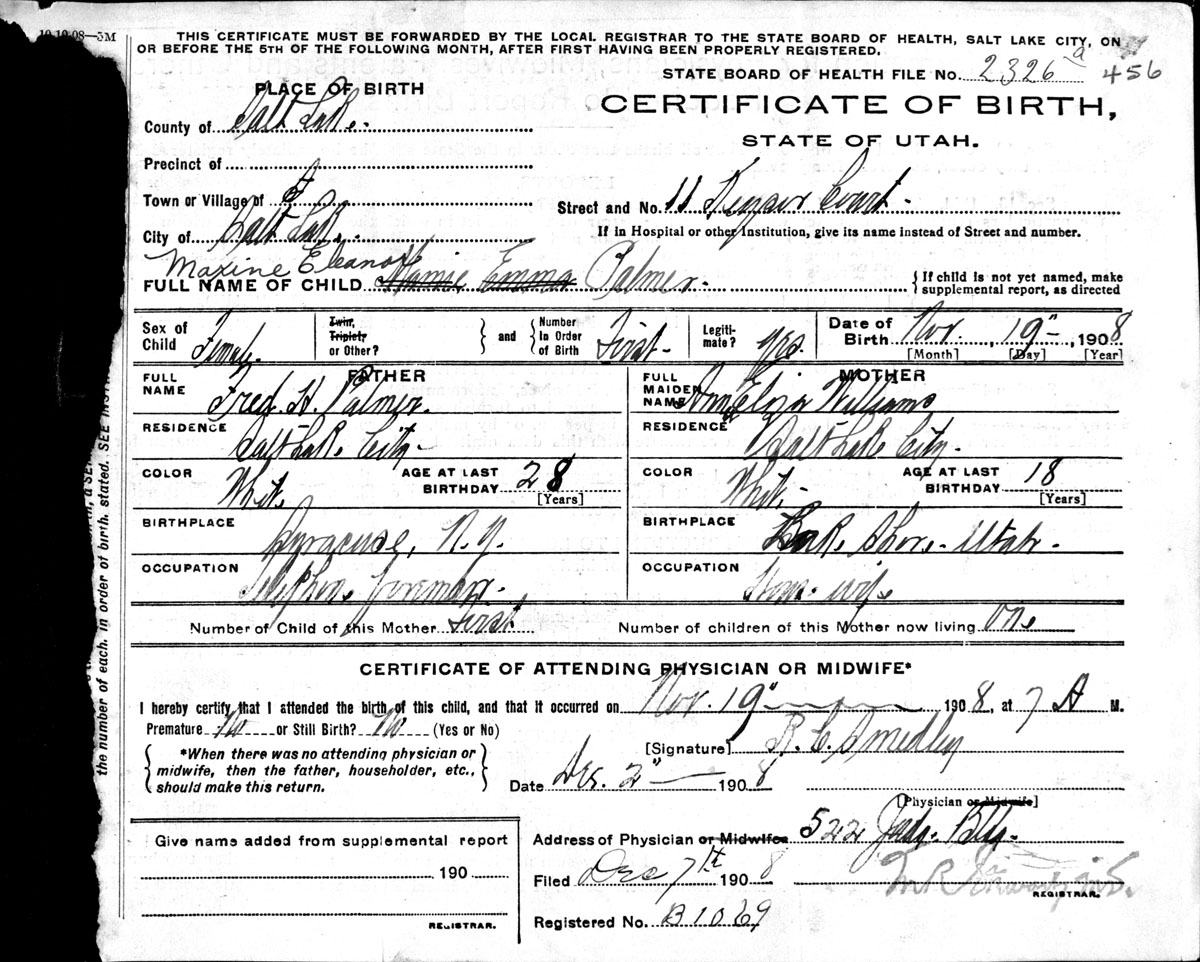 10-19-08—3M
THIS CERTIFICATE MUST BE FORWARDED BY THE LOCAL REGISTRAR TO THE STATE BOARD OF HEALTH, SALT LAKE CITY, ON
OR BEFORE THE 5TH OF THE FOLLOWING MONTH, AFTER FIRST HAVING BEEN PROPERLY REGISTERED.
STATE BOARD OF HEALTH FILE No. 2326 a 456
PLACE OF BIRTH
CERTIFICATE OF BIRTH,
STATE OF UTAH.
County of Salt Lake.
Precinct of
Town or Village of
Street and No. 11 Court.
City of Salt Lake.
If in Hospital or other Institution, give its name instead of Street and number.
Maxine Eleanor
FULL NAME OF CHILD Mamie Emma Palmer.
{If child is not yet named, make supplemental report, as directed
Sex of Child Female.
Twin, Triplet, or Other? } and { Number in Order of Birth First.
Legiti-mate? Yes.
Date of Birth Nov. 19", 1908
[Month] [Day] [Year]
FATHER
FULL NAME Fred. H. Palmer.
RESIDENCE Salt Lake City.
COLOR White
AGE AT LAST BIRTHDAY 28 [Years]
BIRTHPLACE Syracuse, N.Y.
OCCUPATION Telephone Foreman.
MOTHER
FULL MAIDEN NAME Eliza Williams
RESIDENCE Salt Lake City.
COLOR White
AGE AT LAST BIRTHDAY 18 [Years]
BIRTHPLACE Lake Shore. Utah.
OCCUPATION House wife
Number of Child of this Mother First
Number of children of this Mother now living One
CERTIFICATE OF ATTENDING PHYSICIAN OR MIDWIFE*
I hereby certify that I attended the birth of this child, and that it occurred on Nov. 19" 1908, at 7 A M.
Premature No or Still Birth? No (Yes or No)
*When there was no attending physician or
midwife, then the father, householder, etc.,
should make this return.
[Signature] R. C. Smedley
Date Dec. 2" 1908
[Physician or Midwife]
Give name added from supplemental report
190
REGISTRAR.
Address of Physician or Midwife 522 Judge Bldg.
Filed Dec 7th 1908
M R M.D.
REGISTRAR.
Registered No. B1069
the number of each, in order of birth, stated. SEE INSTR